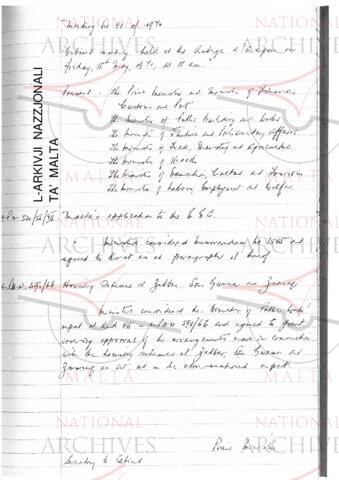 Meeting No 21 of 1970
Cabinet meeting held at the Auberge d'Aragon on
Friday, 15th May, 1970, at 11 am.
Present: The Prime Minister and Minister of Finance,
Customs and Port
The Minister of Public Building and Works
The Minister of Justice and Parliamentary Affairs
The Minister of Trade, Industry and Agriculture
The Minister of Health
The Minister of Education, Culture and Tourism
The Minister of Labour, Employment and Welfare
Malta's application to the E.E.C.
Ministers considered memorandum No 1505 and
agreed to
Housing Scheme at Zabbar, San Gwann and
Ministers considered the Minister of Public Works'
report at 390/66 and agreed to grant
covering approval of the arrangements made in connection
with the housing schemes at Zabbar, San Gwann and
as set out in the above-mentioned report.
Prime Minister
Secretary to Cabinet
L-ARKIVJI NAZZJONALI
TA' MALTA
NATIONAL
ARCHIVES
MALTA